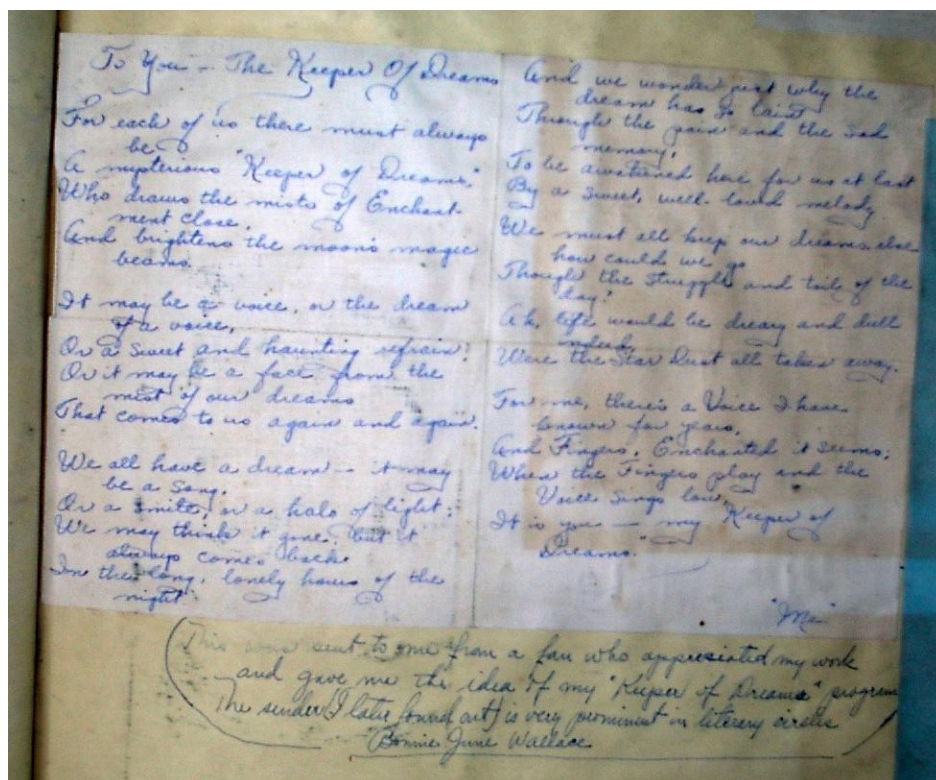 To You - The Keeper Of Dreams
For each of us there must always
be
A mysterious "Keeper of Dreams,"
Who draws the mists of Enchant-
ment close,
And brightens the moon's magic
beams.
It may be a voice, or the dream
of a voice,
Or a sweet and haunting refrain;
Or it may be a face from the
mist of our dreams
That comes to us again and again.
We all have a dream - it may
be a song,
Or a smile, or a halo of light;
We may think it gone, but it
always comes back
In the long, lonely hours of the
night
And we wonder just why the
dream has so lain
Through the pain and the sad
memory,
To be awakened here for us at last
By a sweet, well-loved melody
We must all keep our dreams, else
how could we go
Though the struggle and toil of the
day?
Ah, life would be dreary and dull
indeed
Were the Star Dust all taken away.
For me, there's a Voice I have
known for years,
And Fingers, Enchanted it seems;
When the Fingers play and the
Voice sings low,
It is you - my "Keeper of
Dreams."
"Me"
(This was sent to me from a fan who appresiated my work
and gave me the idea of my "Keeper of Dreams" program
The sender (I later found out) is very prominent in literery circles
Bonnie June Wallace